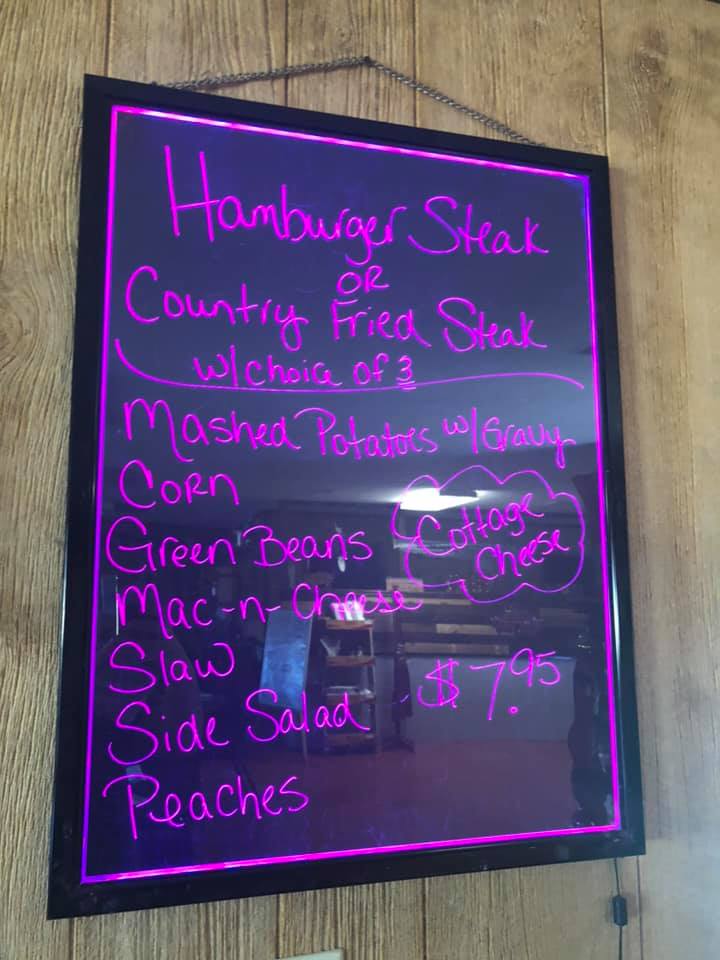 Hamburger Steak
OR
Country Fried Steak
w/choice of 3
Mashed Potatoes w/Gravy
Corn
Green Beans
Cottage
Cheese
Mac-n-Cheese
Slaw
Side Salad
$7.95
Peaches